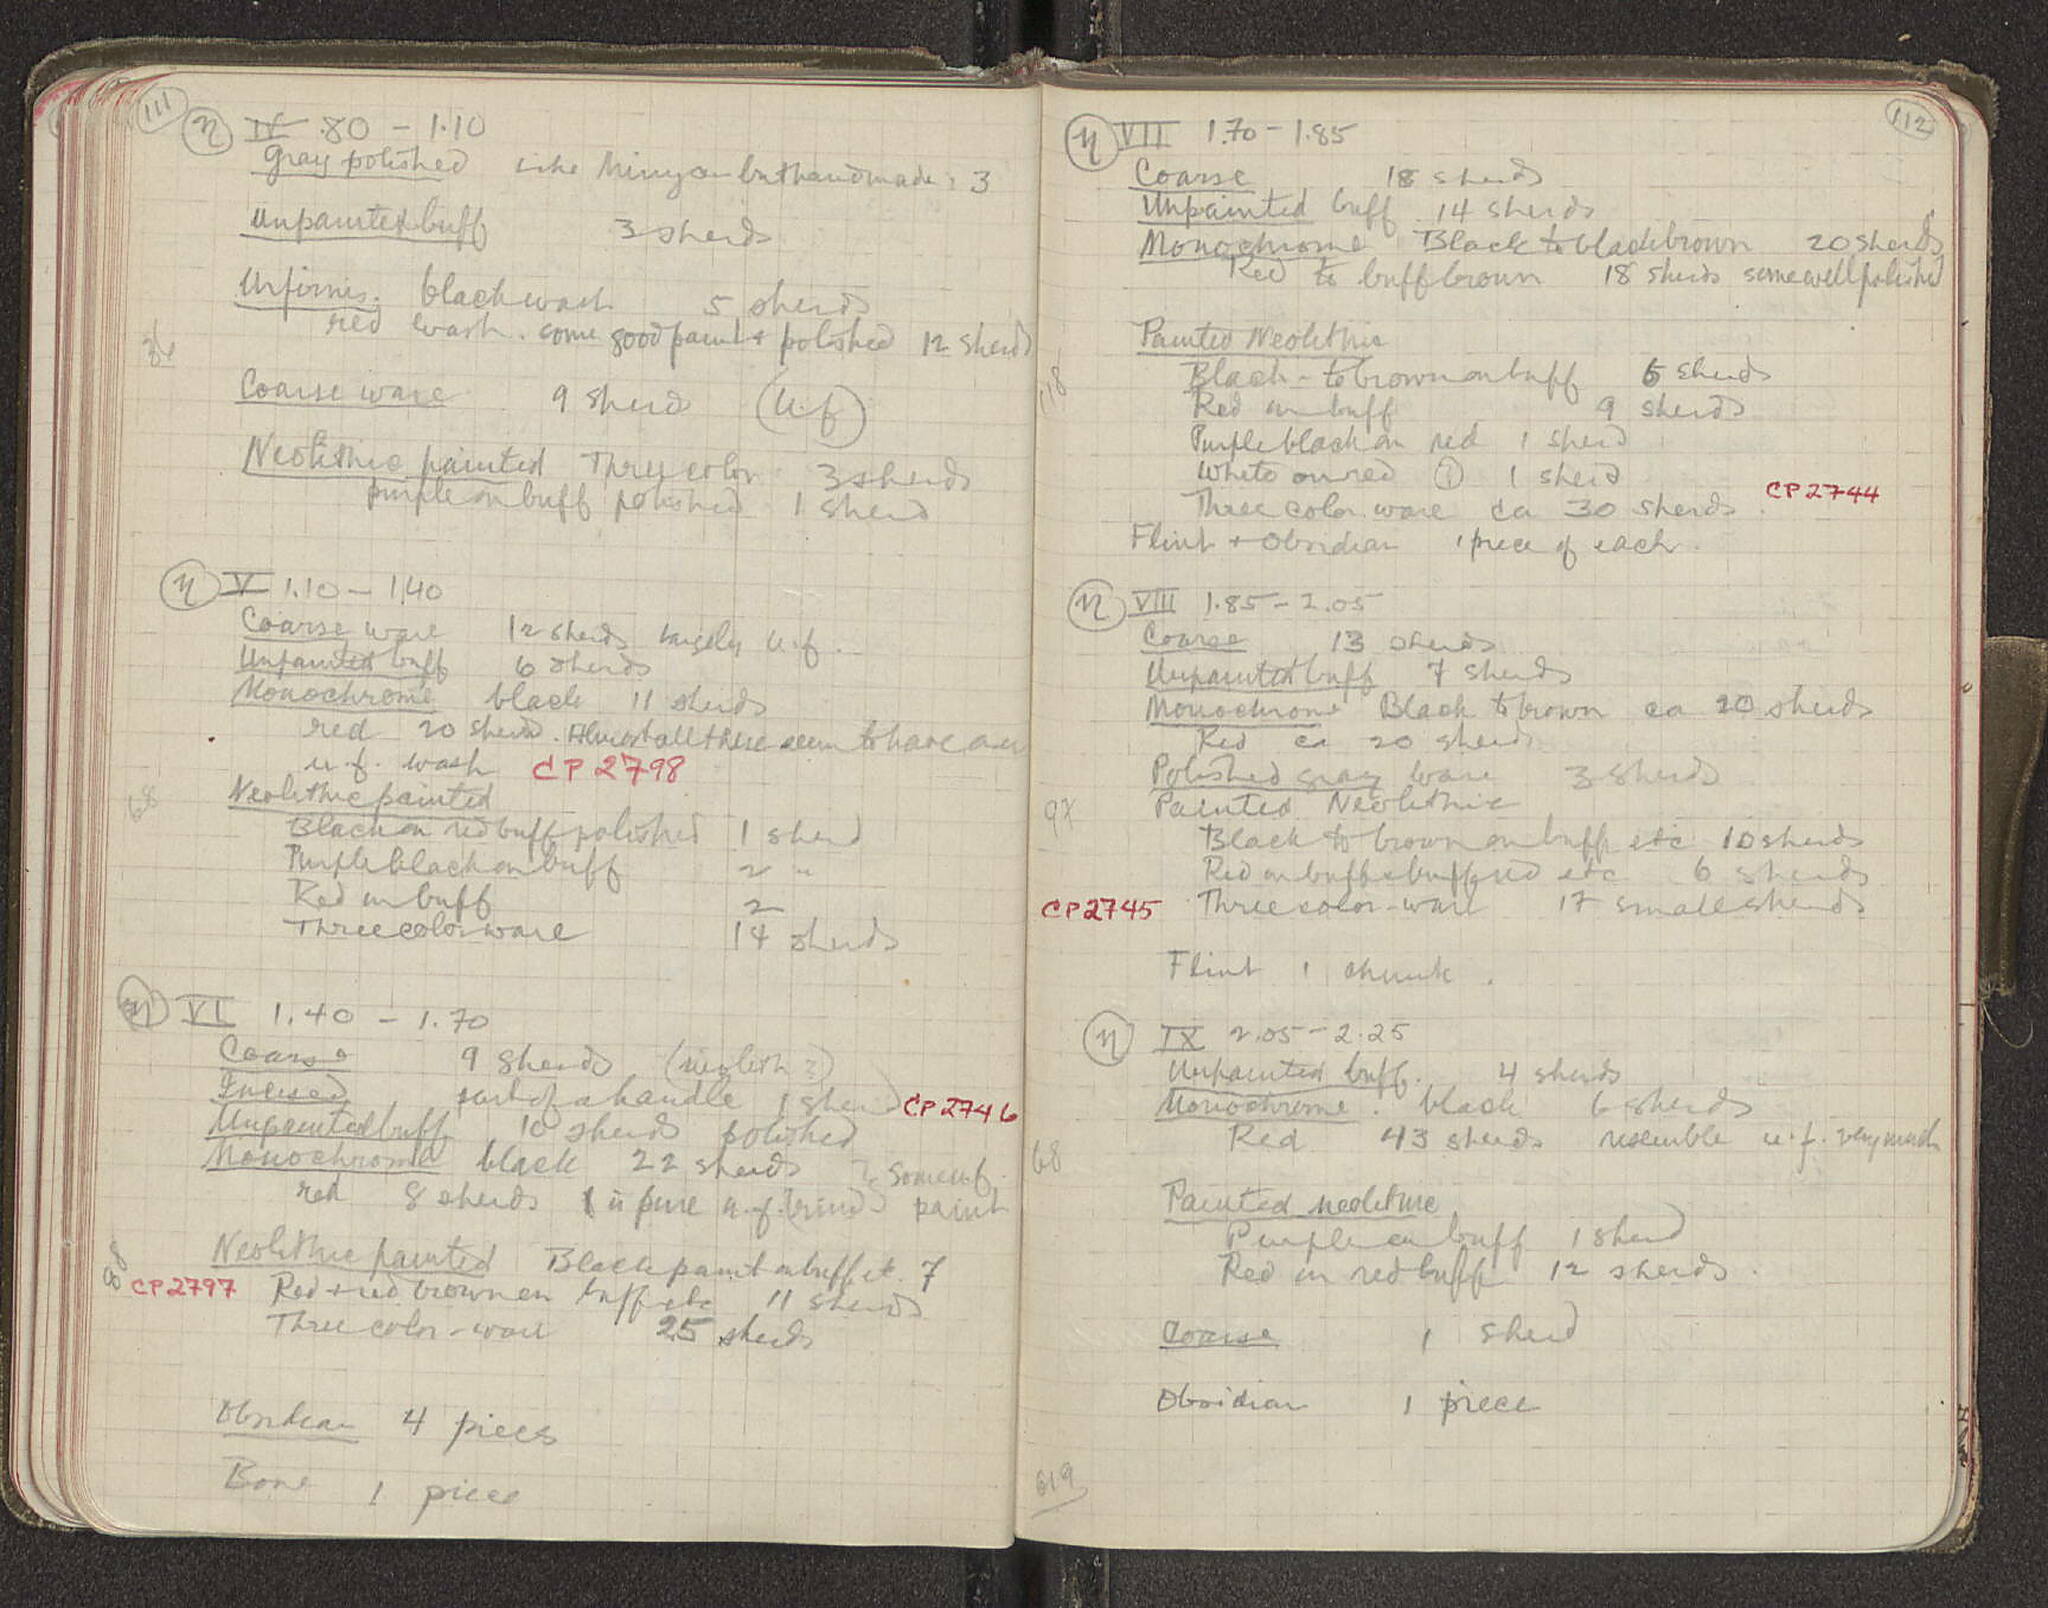 111
η IV .80 - 1.10
Gray polished like Minyan but handmade: 3
Unpainted buff 3 sherds
Urfirnis. black wash 5 sherds
red wash. some good paint + polished 12 sherds
36
Coarse ware 9 sherd (U.f)
Neolithic painted Three color 3 sherds
purple on buff polished 1 sherd
η V 1.10 - 1.40
Coarse ware 12 sherds largely U.f.
Unpainted buff 6 sherds
Monochrome black 11 sherds
red 20 sherds. Almost all these seem to have a
u.f. wash CP 2798
Neolithic painted
68
Black on red buff polished 1 sherd
Purple black on buff 2 "
Red on buff 2
Three color ware 14 sherds
η VI 1.40 - 1.70
Coarse 9 sherds (neolith?)
Incised part of a handle 1 sherd CP 2746
Unpainted buff 10 sherds polished
Monochrome black 22 sherds some u.f.
red 8 sherds 1 is pure u.f. paint
Neolithic painted Black paint on buff etc 7
88
CP 2797 Red + red brown on buff etc 11 sherds
Three color-ware 25 sherds
Obsidian 4 pieces
Bone 1 piece
112
η VII 1.70 - 1.85
Coarse 18 sherds
Unpainted buff 14 sherds
Monochrome Black to black brown 20 sherds
Red to buff brown 18 sherds some well polished
Painted Neolithic
118
Black - to brown on buff 6 sherds
Red on buff 9 sherds
Purple black on red 1 sherd
White on red 1 sherd
Three color ware ca 30 sherds. CP 2744
Flint + Obsidian 1 piece of each.
η VIII 1.85 - 2.05
Coarse 13 sherds
Unpainted buff 7 sherds
Monochrome Black to brown ca 20 sherds
Red ca 20 sherds
Polished gray ware 3 sherds
97 Painted Neolithic
Black to brown on buff etc 10 sherds
Red on buff + buff red etc 6 sherds
CP 2745 Three color-ware 17 small sherds
Flint 1 chunk.
η IX 2.05 - 2.25
Unpainted buff. 4 sherds
Monochrome. black 6 sherds
Red 43 sherds resemble u.f. very much
68
Painted neolithic
Purple on buff 1 sherd
Red on red buff 12 sherds.
Coarse 1 sherd
Obsidian 1 piece
619